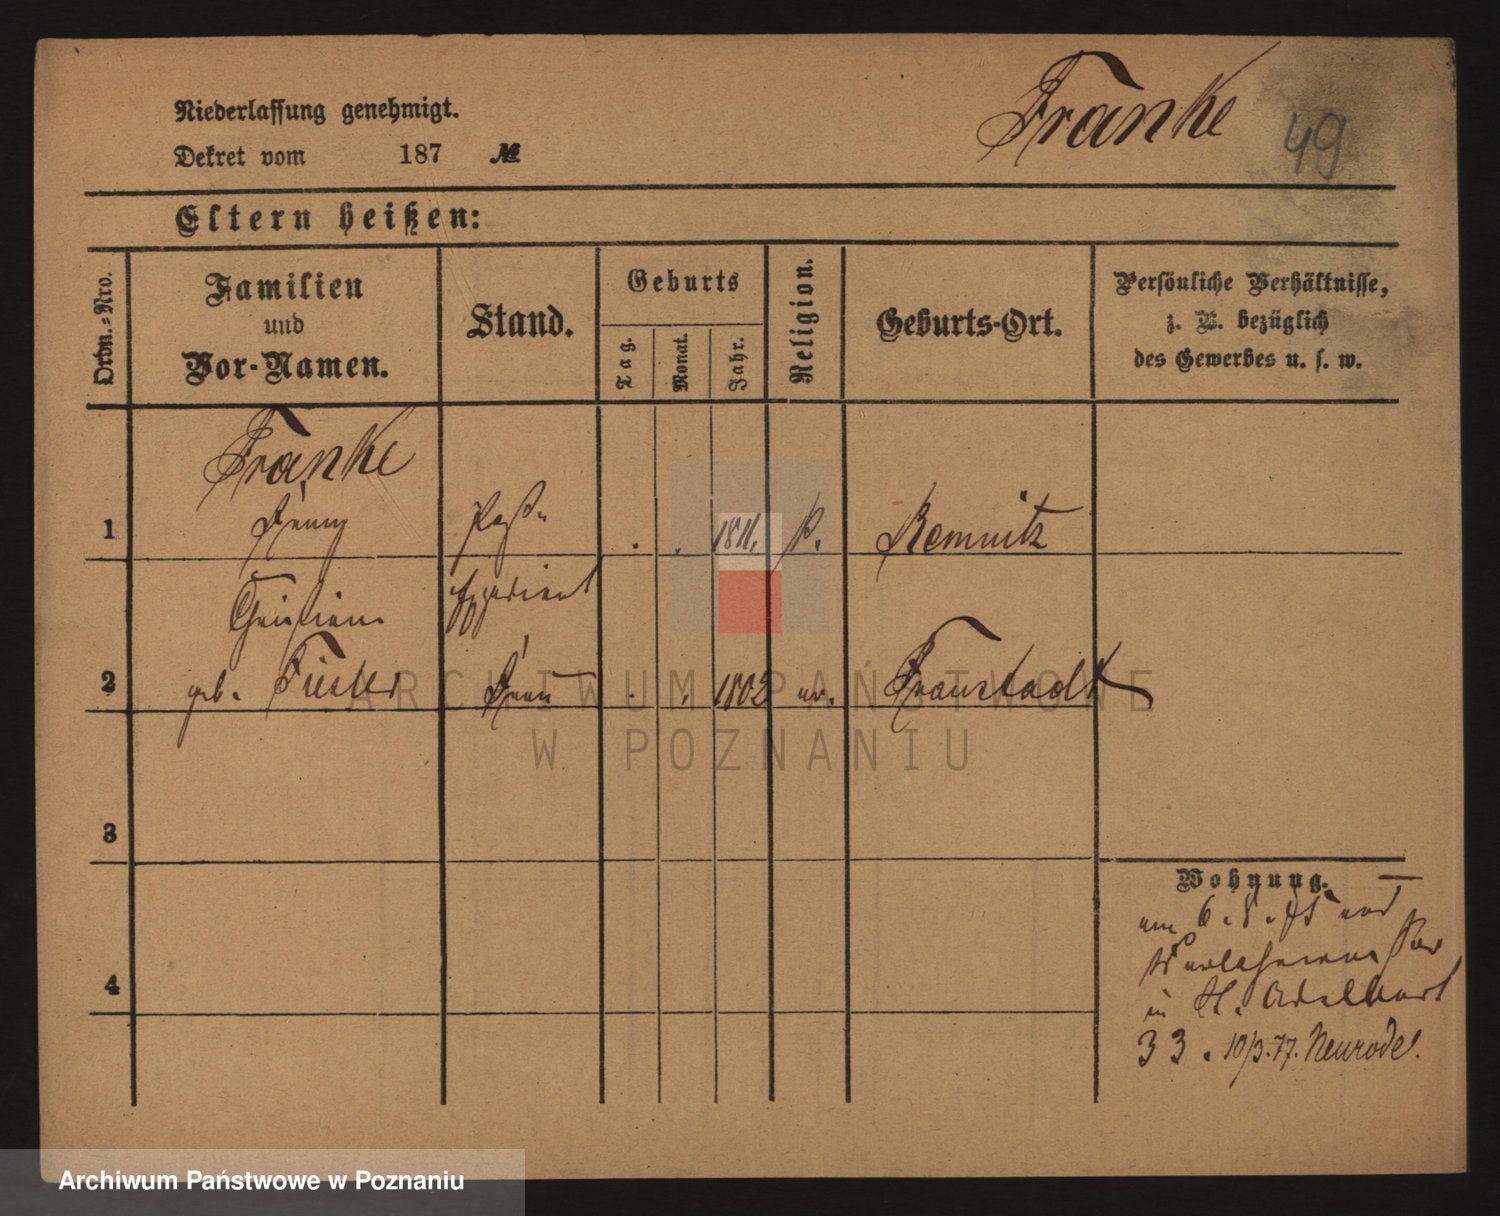 Niederlassung genehmigt.
Dekret vom 187 №
Franke
49
Eltern heißen:
Ordn.-Nro.
Familien und Vor-Namen.
Stand.
Geburts
Tag.
Monat.
Jahr.
Religion.
Geburts-Ort.
Persönliche Verhältnisse, z. B. bezüglich des Gewerbes u. s. w.
Franke
1 . . 1811. k. Kemnitz
2 geb. Frau . . 1802 ev. Fraustadt
3
Wohnung.
am 6. 8. 75
4
in St. Adelbert
33. 10/3.77. Neurode.
ARCHIWUM PAŃSTWOWE
W POZNANIU
Archiwum Państwowe w Poznaniu